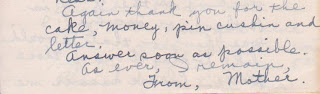 Again thank you for the
cake, money, pin cushin and
letter.
Answer soon as possible.
As ever, I remain,
From, Mother.